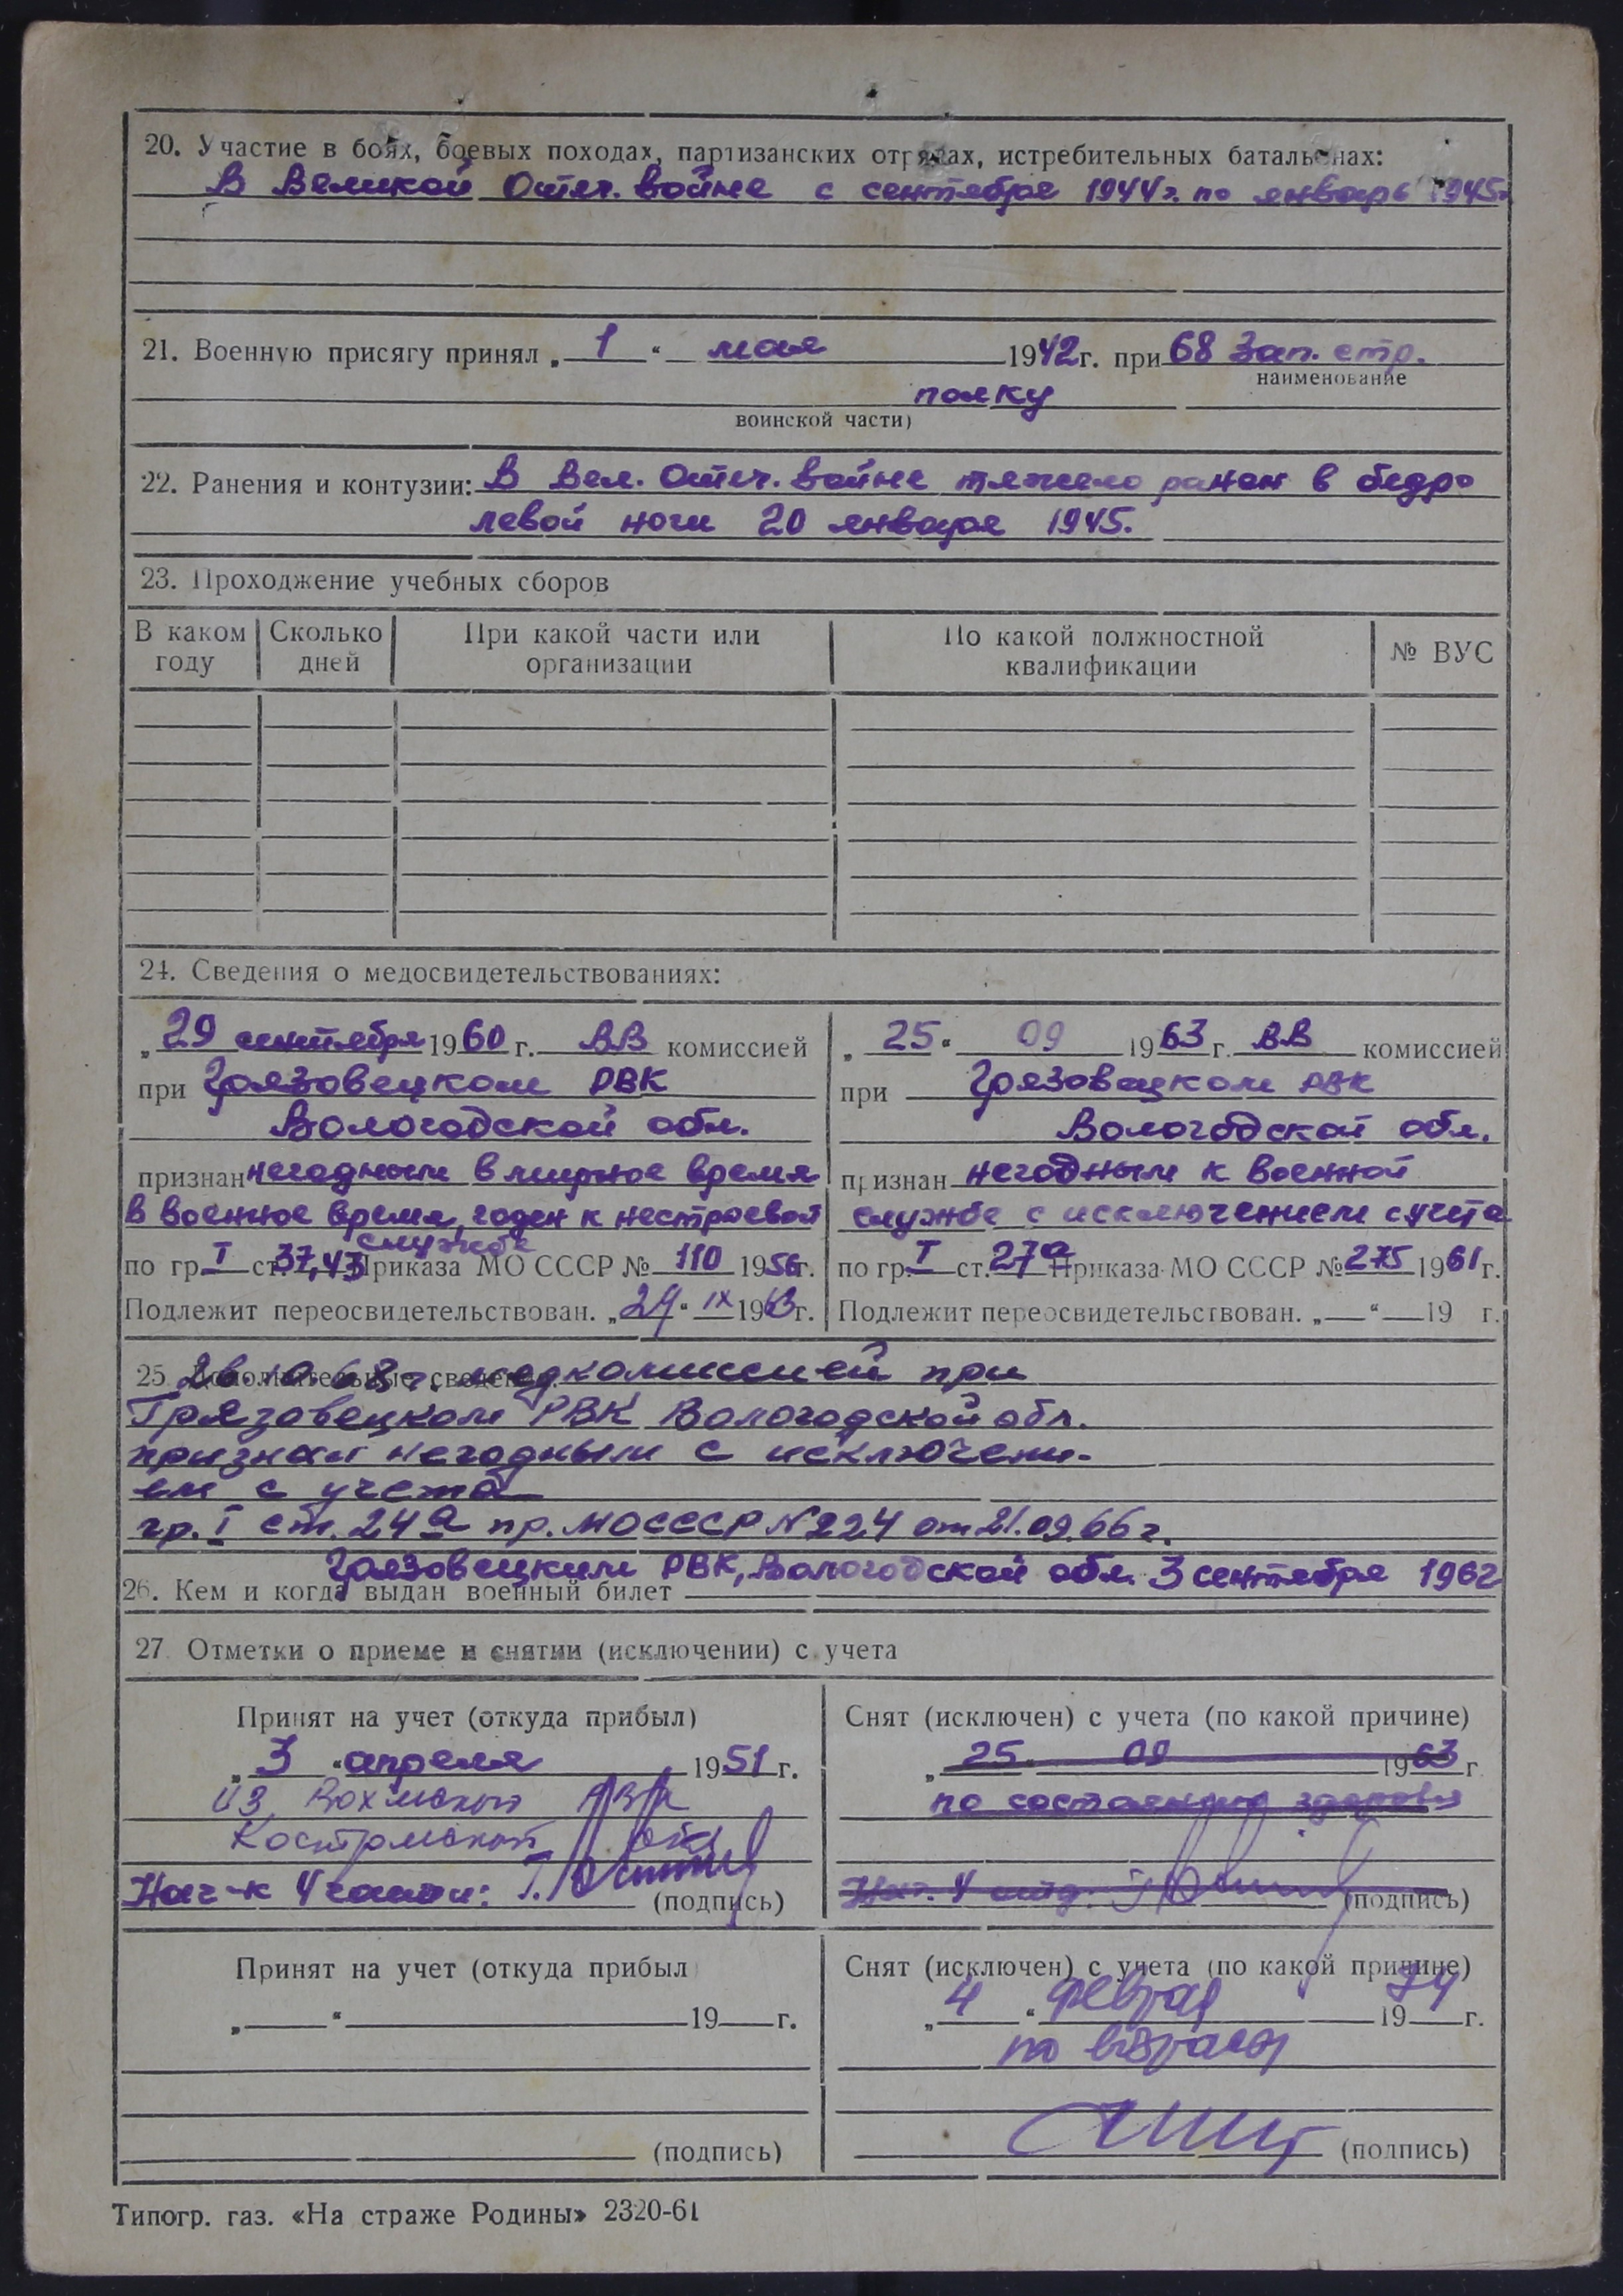 20. Участие в боях, боевых походах, партизанских отрядах, истребительных батальонах:
В Великой Отеч. войне с сентября 1944 г. по январь 1945 г.
21. Военную присягу принял „ 1 “ мая 1942 г. при 68 Зап. стр.
наименование
полку
воинской части)
22. Ранения и контузии: В Вел. Отеч. войне тяжело ранен в бедро
левой ноги 20 января 1945.
23. Прохождение учебных сборов
В каком году | Сколько дней | При какой части или организации | По какой должностной квалификации | № ВУС
24. Сведения о медосвидетельствованиях:
„ 29 сентября 1960 г. ВВ комиссией
при Грязовецком РВК
Вологодской обл.
признан негодным в мирное время
В военное время, годен к нестроевой
службе
по гр. I ст. 37,43 Приказа МО СССР № 110 1956 г.
Подлежит переосвидетельствован. „ 24 “ IX 1963 г.
„ 25 “ 09 1963 г. ВВ комиссией
при Грязовецком РВК
Вологодской обл.
признан негодным к военной
службе с исключением с учета
по гр. I ст. 27а Приказа МО СССР № 275 1961 г.
Подлежит переосвидетельствован. „ “ 19 г.
25. Дополнительные сведения: 68 г. медкомиссией при
Грязовецком РВК Вологодской обл.
признан негодным с исключени-
ем с учета
гр. I ст. 24а пр. МО СССР N 224 от 21.09.66 г.
Грязовецким РВК, Вологодской обл. 3 сентября 1962
26. Кем и когда выдан военный билет
27. Отметки о приеме и снятии (исключении) с учета
Принят на учет (откуда прибыл)
„ 3 “ апреля 1951 г.
из Вохмского РВК
Костромской обл.
Нач-к 4 части:
(подпись)
Снят (исключен) с учета (по какой причине)
„ 25 “ 09 1963 г.
по состоянию здоровья
Нач. 4 отд.
(подпись)
Принят на учет (откуда прибыл
„ “ 19 г.
(подпись)
Снят (исключен) с учета (по какой причине)
„ 4 “ февраля 1974 г.
по возрасту
(подпись)
Типогр. газ. «На страже Родины» 2320-61